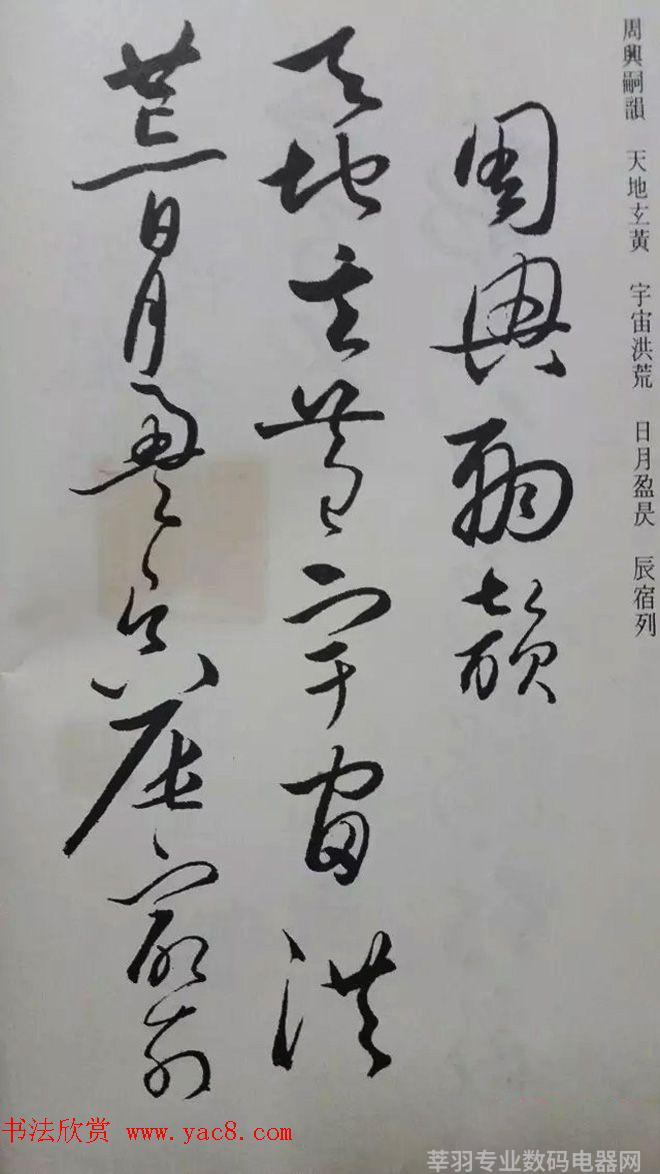 周興嗣韻 天地玄黃 宇宙洪荒 日月盈昃 辰宿列
周興嗣韻
天地玄黃宇宙洪
荒日月盈昃辰宿列
书法欣赏 www.yac8.com
莘羽专业数码电器网